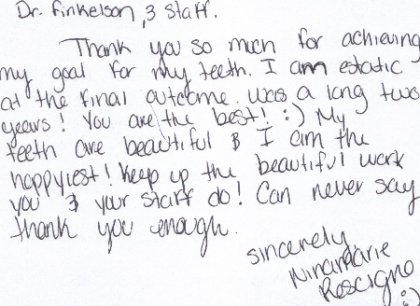 Dr. Finkelson, & Staff.
Thank you so much for achieving
my goal for my teeth. I am estatic
at the final outcome. Was a long two
years! You are the best! :) My
teeth are beautiful & I am the
happyiest! Keep up the beautiful work
you & your staff do! Can never say
thank you enough.
sincerely
Ninamarie
Roscigno
:)